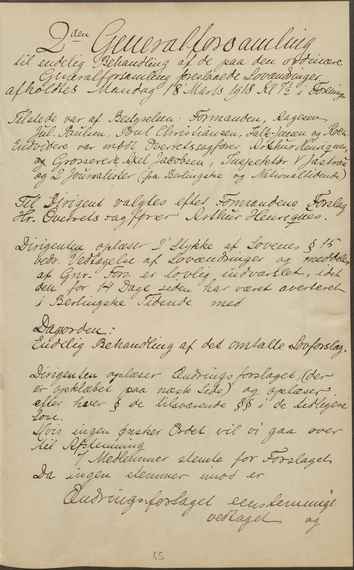 2den Generalforsamling
til endelig Behandling af de paa den ordinære
Generalforsamling foreslaaede Lovændringer
afholdtes Mandag 18 Marts 1918 Kl 7½ i
Tilstede var af Bestyrelsen: Formanden, Kaptein
Jul. Paulsen, Poul Christiansen, og
Endvidere var mødt Overretssagfører, Arthur Henriques,
og Grosserer Axel Jacobsen, Inspektør V
og 2 Journalister (fra Berlingske og Nationaltidende)
Til Dirigent valgtes efter Formandens Forslag
Hr. Overretssagfører Arthur Henriques.
Dirigenten oplæser 2' Stykke af Lovenes § 15
bedr. Vedtagelse af Lovændringer og meddeler
at Gnr. Fors. er lovlig indvarslet, idet
den for 14 Dage siden har været averteret
i Berlingske Tidende med
Dagorden:
Endelig Behandling af det omtalte Lovforslag.
Dirigenten oplæser Ændringsforslaget, (der
er vedklæbet paa næste Side) og oplæser
efter hver § de tilsvarende §§ i de tidligere
Love.
Hvis ingen ønsker Ordet vil vi gaa over
til Afstemning
Medlemmer stemte for Forslaget
Da ingen stemmer mod er
Ændringsforslaget eenstemmigt
vedtaget og
15